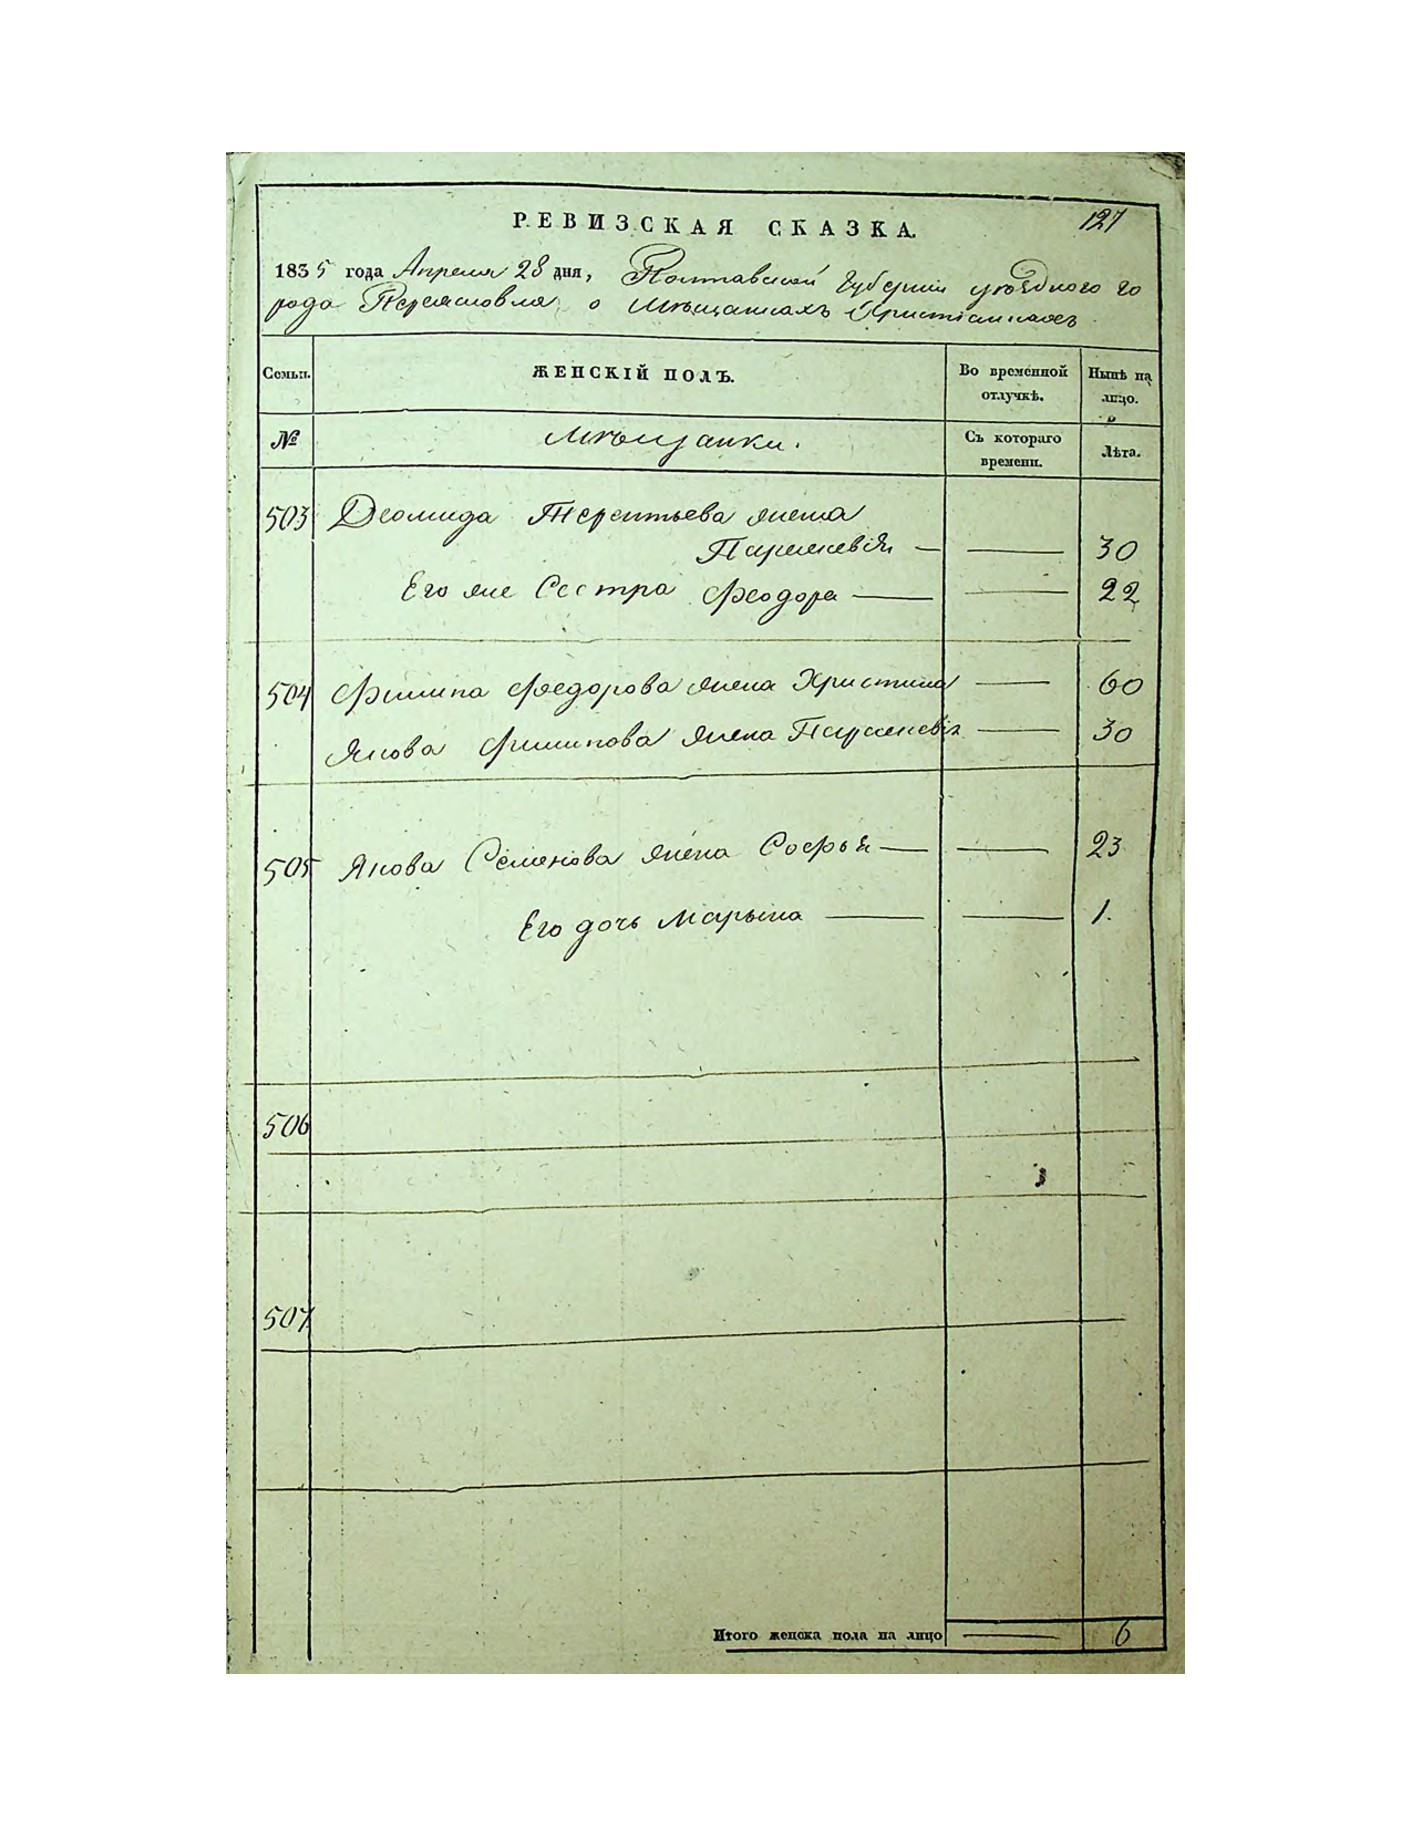 127
РЕВИЗСКАЯ СКАЗКА.
1835 года Апреля 28 дня, Полтавской Губернии уѣздного го
рода Переясловля о Мѣщанахъ Христіанахъ
Семьи. ЖЕНСКІЙ ПОЛЪ. Во временной отлучкѣ. Нынѣ на лицо.
№ Мѣщанки. Съ котораго времени. Лѣта.
503 Деомида Терентьева жена
Параскевія — — 30
Его же Сестра Феодора — — 22
504 Филипа Федорова жена Христина — 60
Якова Филипова жена Параскевія — 30
505 Якова Семенова жена Софья — — 23
Его дочь Марына — — 1.
506
507
Итого женска пола на лицо — 6